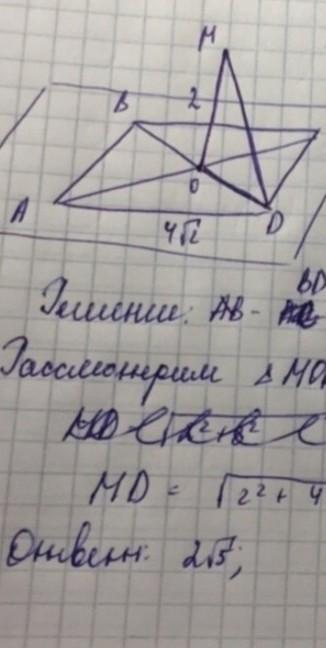 M
B 2
O
A D
4√2
BD
Решение: AB -
Рассмотрим △ MO
MD = √2² + 4
Ответ: 2√5;